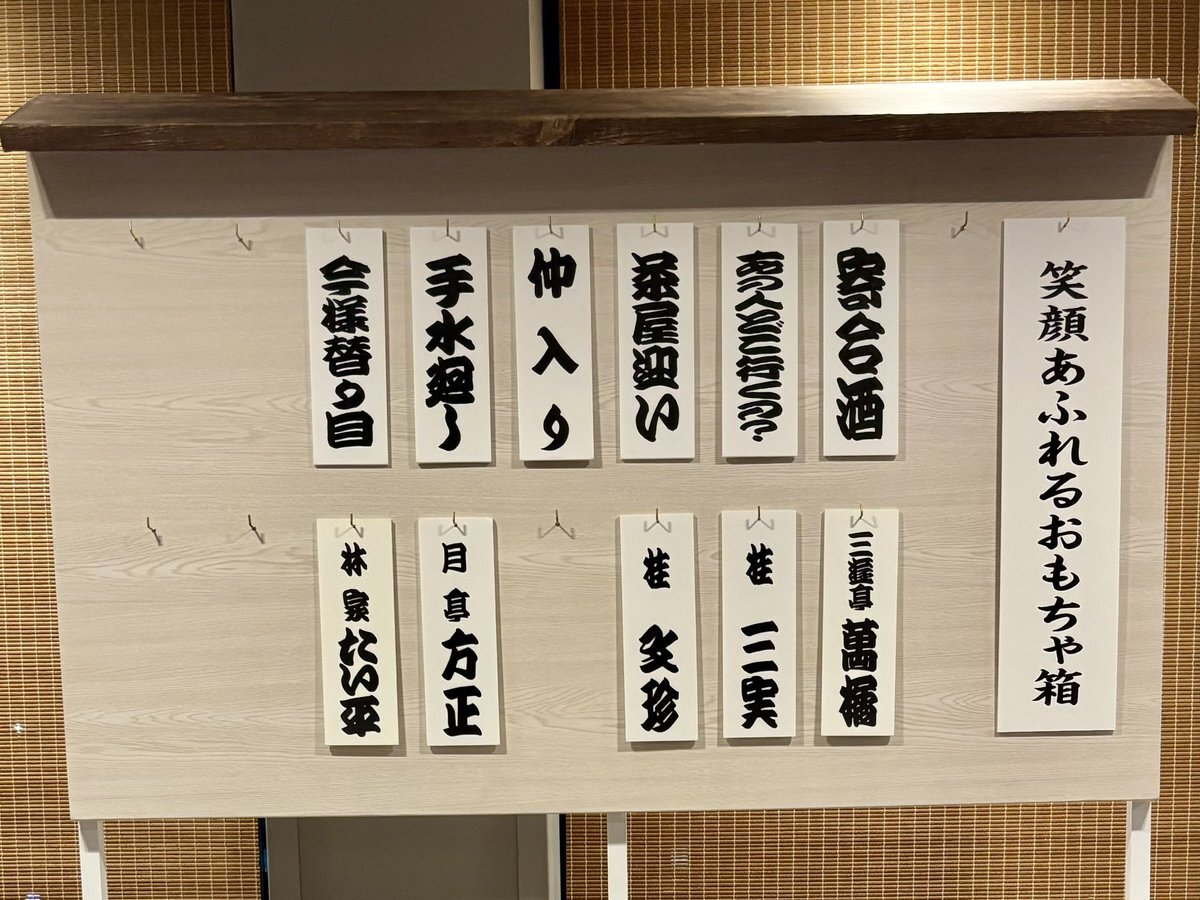 笑顔あふれるおもちゃ箱
寄合酒
三遊亭 萬橘
あの人どこ行くの？
桂 三実
茶屋迎い
桂 文珍
仲入り
手水廻し
月亭 方正
今様替り目
林家 たい平